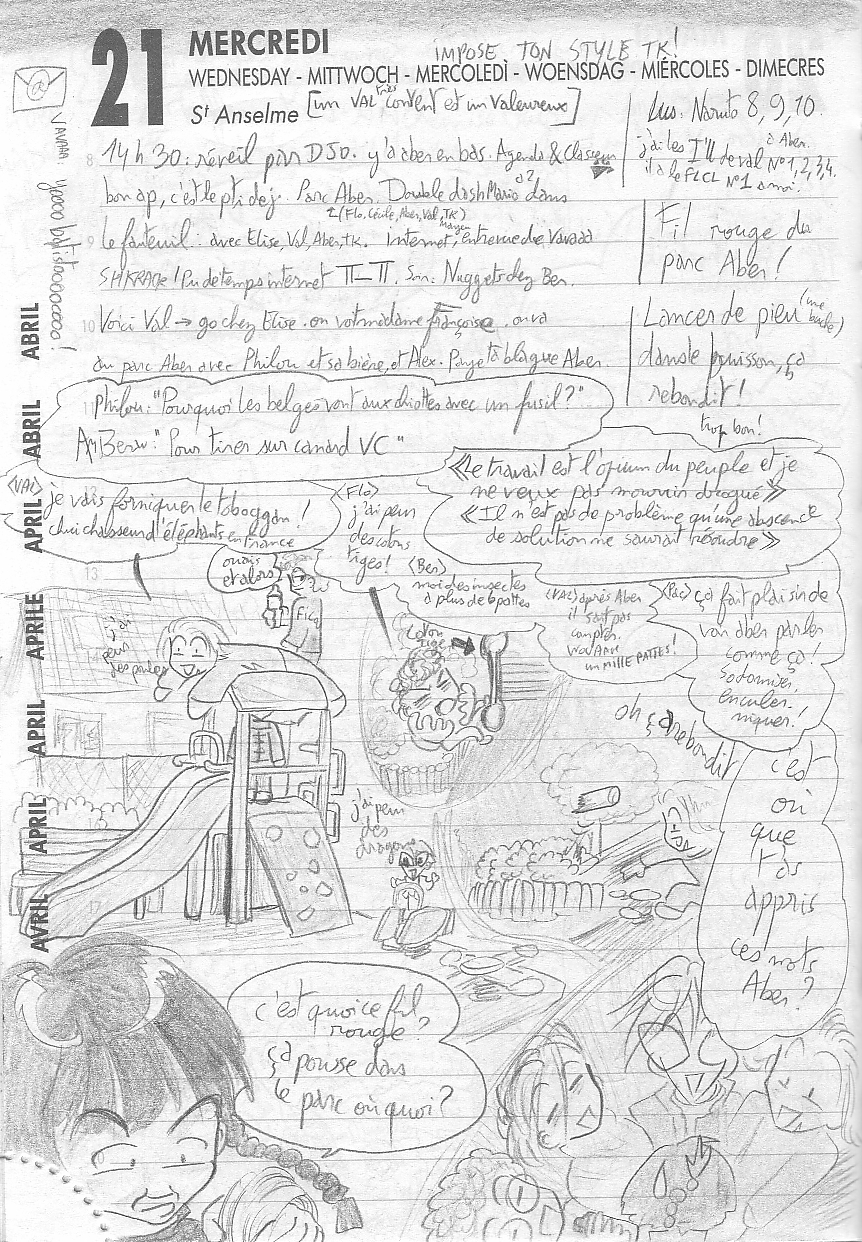 21 MERCREDI
IMPOSE TON STYLE TK!
WEDNESDAY - MITTWOCH - MERCOLEDÌ - WOENSDAG - MIÉRCOLES - DIMECRES
St Anselme [un VAL très content est un valeureux]
8 14 h 30: réveil par DJO. y'a aber en bas. Agenda & Classeur
bon ap, c'est le pti dej. Parc Aber. Double dash Mario dans
à 2
2 (Flo, Cécile, Aber, Val, TK)
9 le fauteuil: avec Elise, Val, Aber, TK. internet,
SHKRACK! Pu de temps internet Soir: Nuggets chez Ben.
10 Voici Val → go chez Elise. on voit madame Françoise. on va
au parc Aber avec Philou et sa bière, et Alex. Paye ta blague Aber.
Lus: Naruto 8, 9, 10.
j'ai les I''ll de val N°1,2,3,4.
à Aber.
il a le FLCL N°1 a moi.
Fil rouge du
parc Aber!
Lancer de pieu (une buche)
dans le buisson, ça
rebondit!
trop bon!
11 Philou: "Pourquoi les belges vont aux chiottes avec un fusil?"
"Pour tirer sur canard VC"
«Le travail est l'opium du peuple et je
ne veux pas mourir drogué»
«Il n'est pas de problème qu'une absence
de solution ne saurait résoudre»
(VAL)
je vais forniquer le toboggan!
chui chasseur d'éléphants en france
(Flo)
j'ai peur
des cotons
tiges!
ouais
et alors
(Ben)
moi des insectes
à plus de 6 pattes
(VAL) après Aber
il sait pas
compter.
un MILLE PATTES!
ça fait plaisir de
voir aber parler
comme ça!
sodomiser,
enculer,
niquer!
13
j'ai
peur
des poules
FICA
coton
tige
oh ça rebondit
j'ai peur
des
dragons
c'est
où
que
t'as
appris
ces mots
Aber?
c'est quoi ce fil
rouge?
ça pousse dans
le parc ou quoi?
17
ABRIL
ABRIL
APRIL
APRILE
APRIL
APRIL
AVRIL